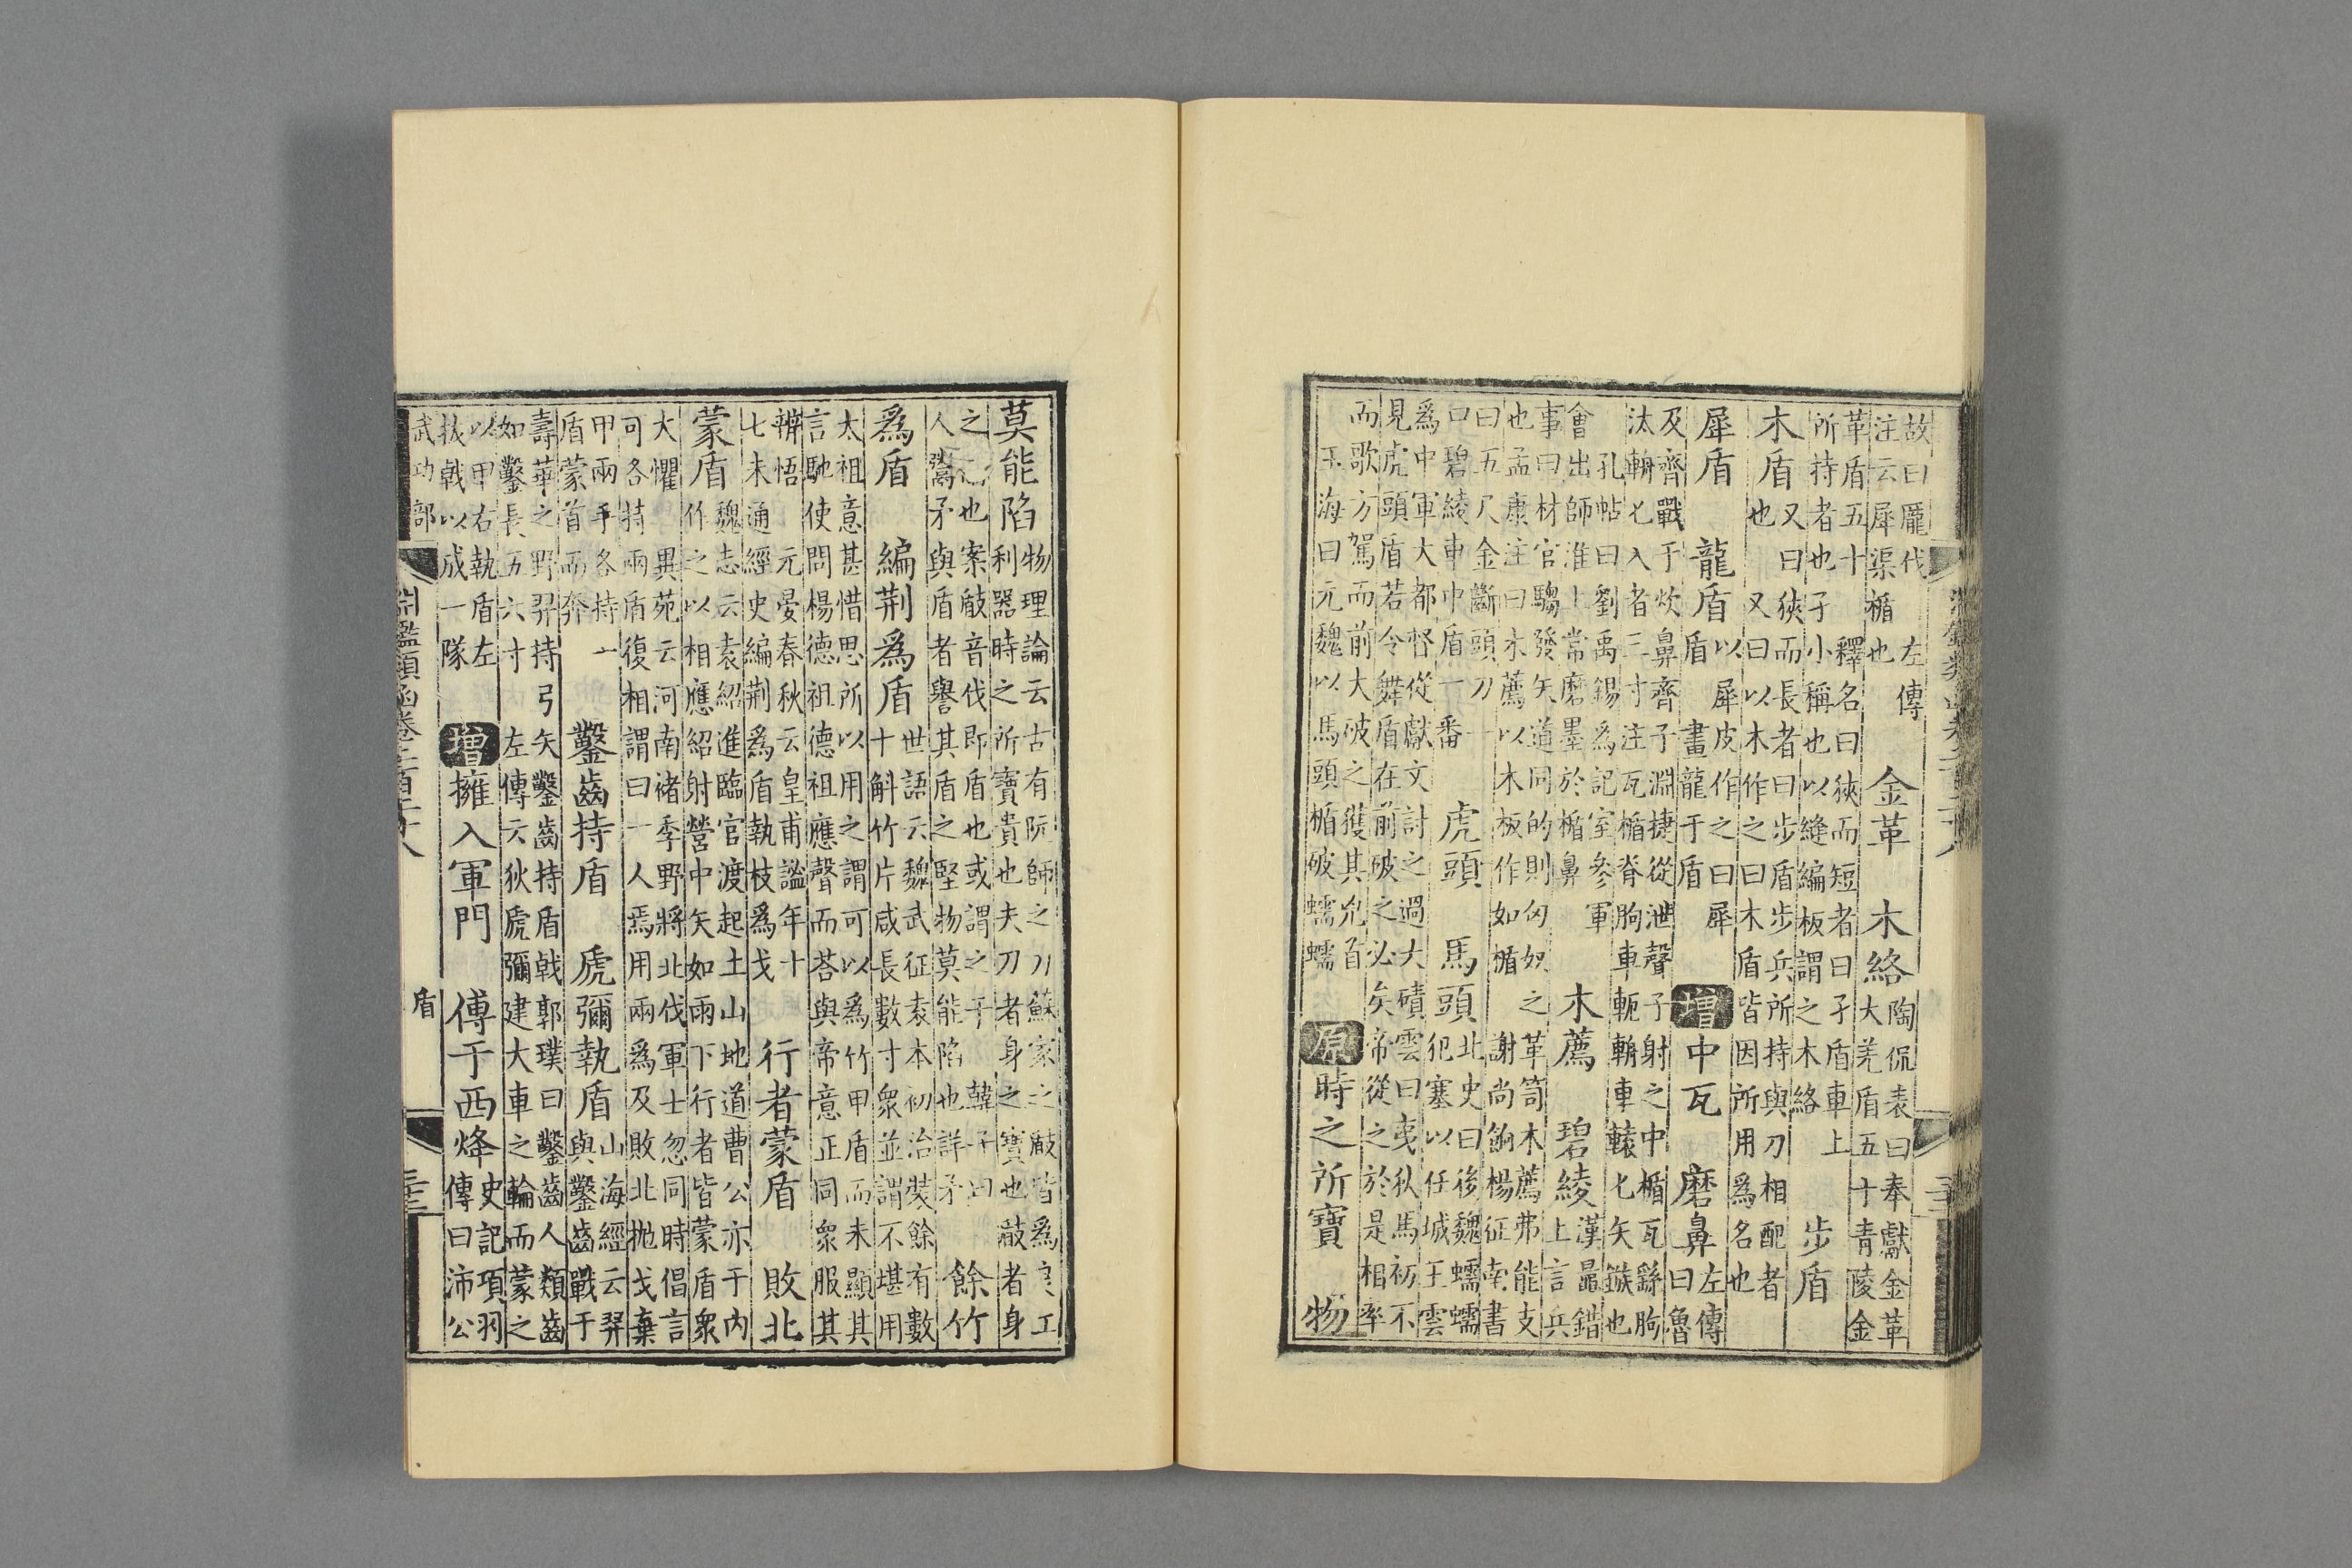 故曰厖伐　左傳注云犀渠楯也　金革　木絡　陶侃表曰奉獻金革大羌盾五十青陵金
革盾五十　釋名曰狹而短者曰孑盾車上所持者也孑小稱也以縫編板謂之木絡　步盾
木盾　又曰狹而長者曰步盾步兵所持與刀相配者也　又曰以木作之曰木盾皆因所用爲名也
犀盾　龍盾　以犀皮作之曰犀盾畫龍于盾　增　中瓦　磨鼻　左傳曰魯
及齊戰于炊鼻齊子淵捷從泄聲子射之中楯瓦繇朐汰輈匕入者三寸注瓦楯脊朐車軛輈車轅匕矢鏃也
孔帖曰劉禹錫爲記室參軍會出師淮上常磨墨於楯鼻　木薦　碧綾　漢鼂錯上言兵
事曰材官騶發矢道同的則匈奴之革笥木薦弗能支也孟康注曰木薦以木板作如楯　謝尚餉楊征南書
曰五尺金斷頭刀一口碧綾車中盾一番　虎頭　馬頭　北史曰後魏蠕蠕犯塞以任城王雲
爲中軍大都督從獻文討之過大磧雲曰夷狄馬初不見虎頭盾若令舞盾在前破之必矣帝從之於是相率
而歌方駕而前大破之獲其兇首　玉海曰元魏以馬頭楯破蠕蠕　原　時之所寶　物
莫能陷　物理論云古有阮師之刀蘇家之瞂皆爲良工利器時之所寶貴也夫刀者身之寶也瞂者身
之也案瞂音伐即盾也或謂之干　韓子曰人鬻矛與盾者譽其盾之堅物莫能陷也詳矛　餘竹
爲盾　編荆爲盾　世語云魏武征袁本初治裝餘有數十斛竹片咸長數寸衆並謂不堪用
太祖意甚惜思所以用之謂可以爲竹甲盾而未顯其言馳使問楊德祖德祖應聲而荅與帝意正同衆服其
辨悟　元晏春秋云皇甫謐年十七未通經史編荆爲盾執枝爲戈　行者蒙盾　敗北
蒙盾　魏志云袁紹進臨官渡起土山地道曹公亦于內作之以相應紹射營中矢如雨下行者皆蒙盾衆
大懼　異苑云河南褚季野將北伐軍士忽同時倡言可各持兩盾復相謂曰一人焉用兩爲及敗北拋戈棄
甲兩手各持一盾蒙首而奔　鑿齒持盾　虒彌執盾　山海經云羿與鑿齒戰于
壽華之野羿持弓矢鑿齒持盾戟郭璞曰鑿齒人類齒如鑿長五六寸　左傳云狄虒彌建大車之輪而蒙之
以甲右執盾左拔戟以成一隊　增　擁入軍門　傅于西烽　史記項羽傳曰沛公
武功部　淵鑑類函卷二百二十八　盾